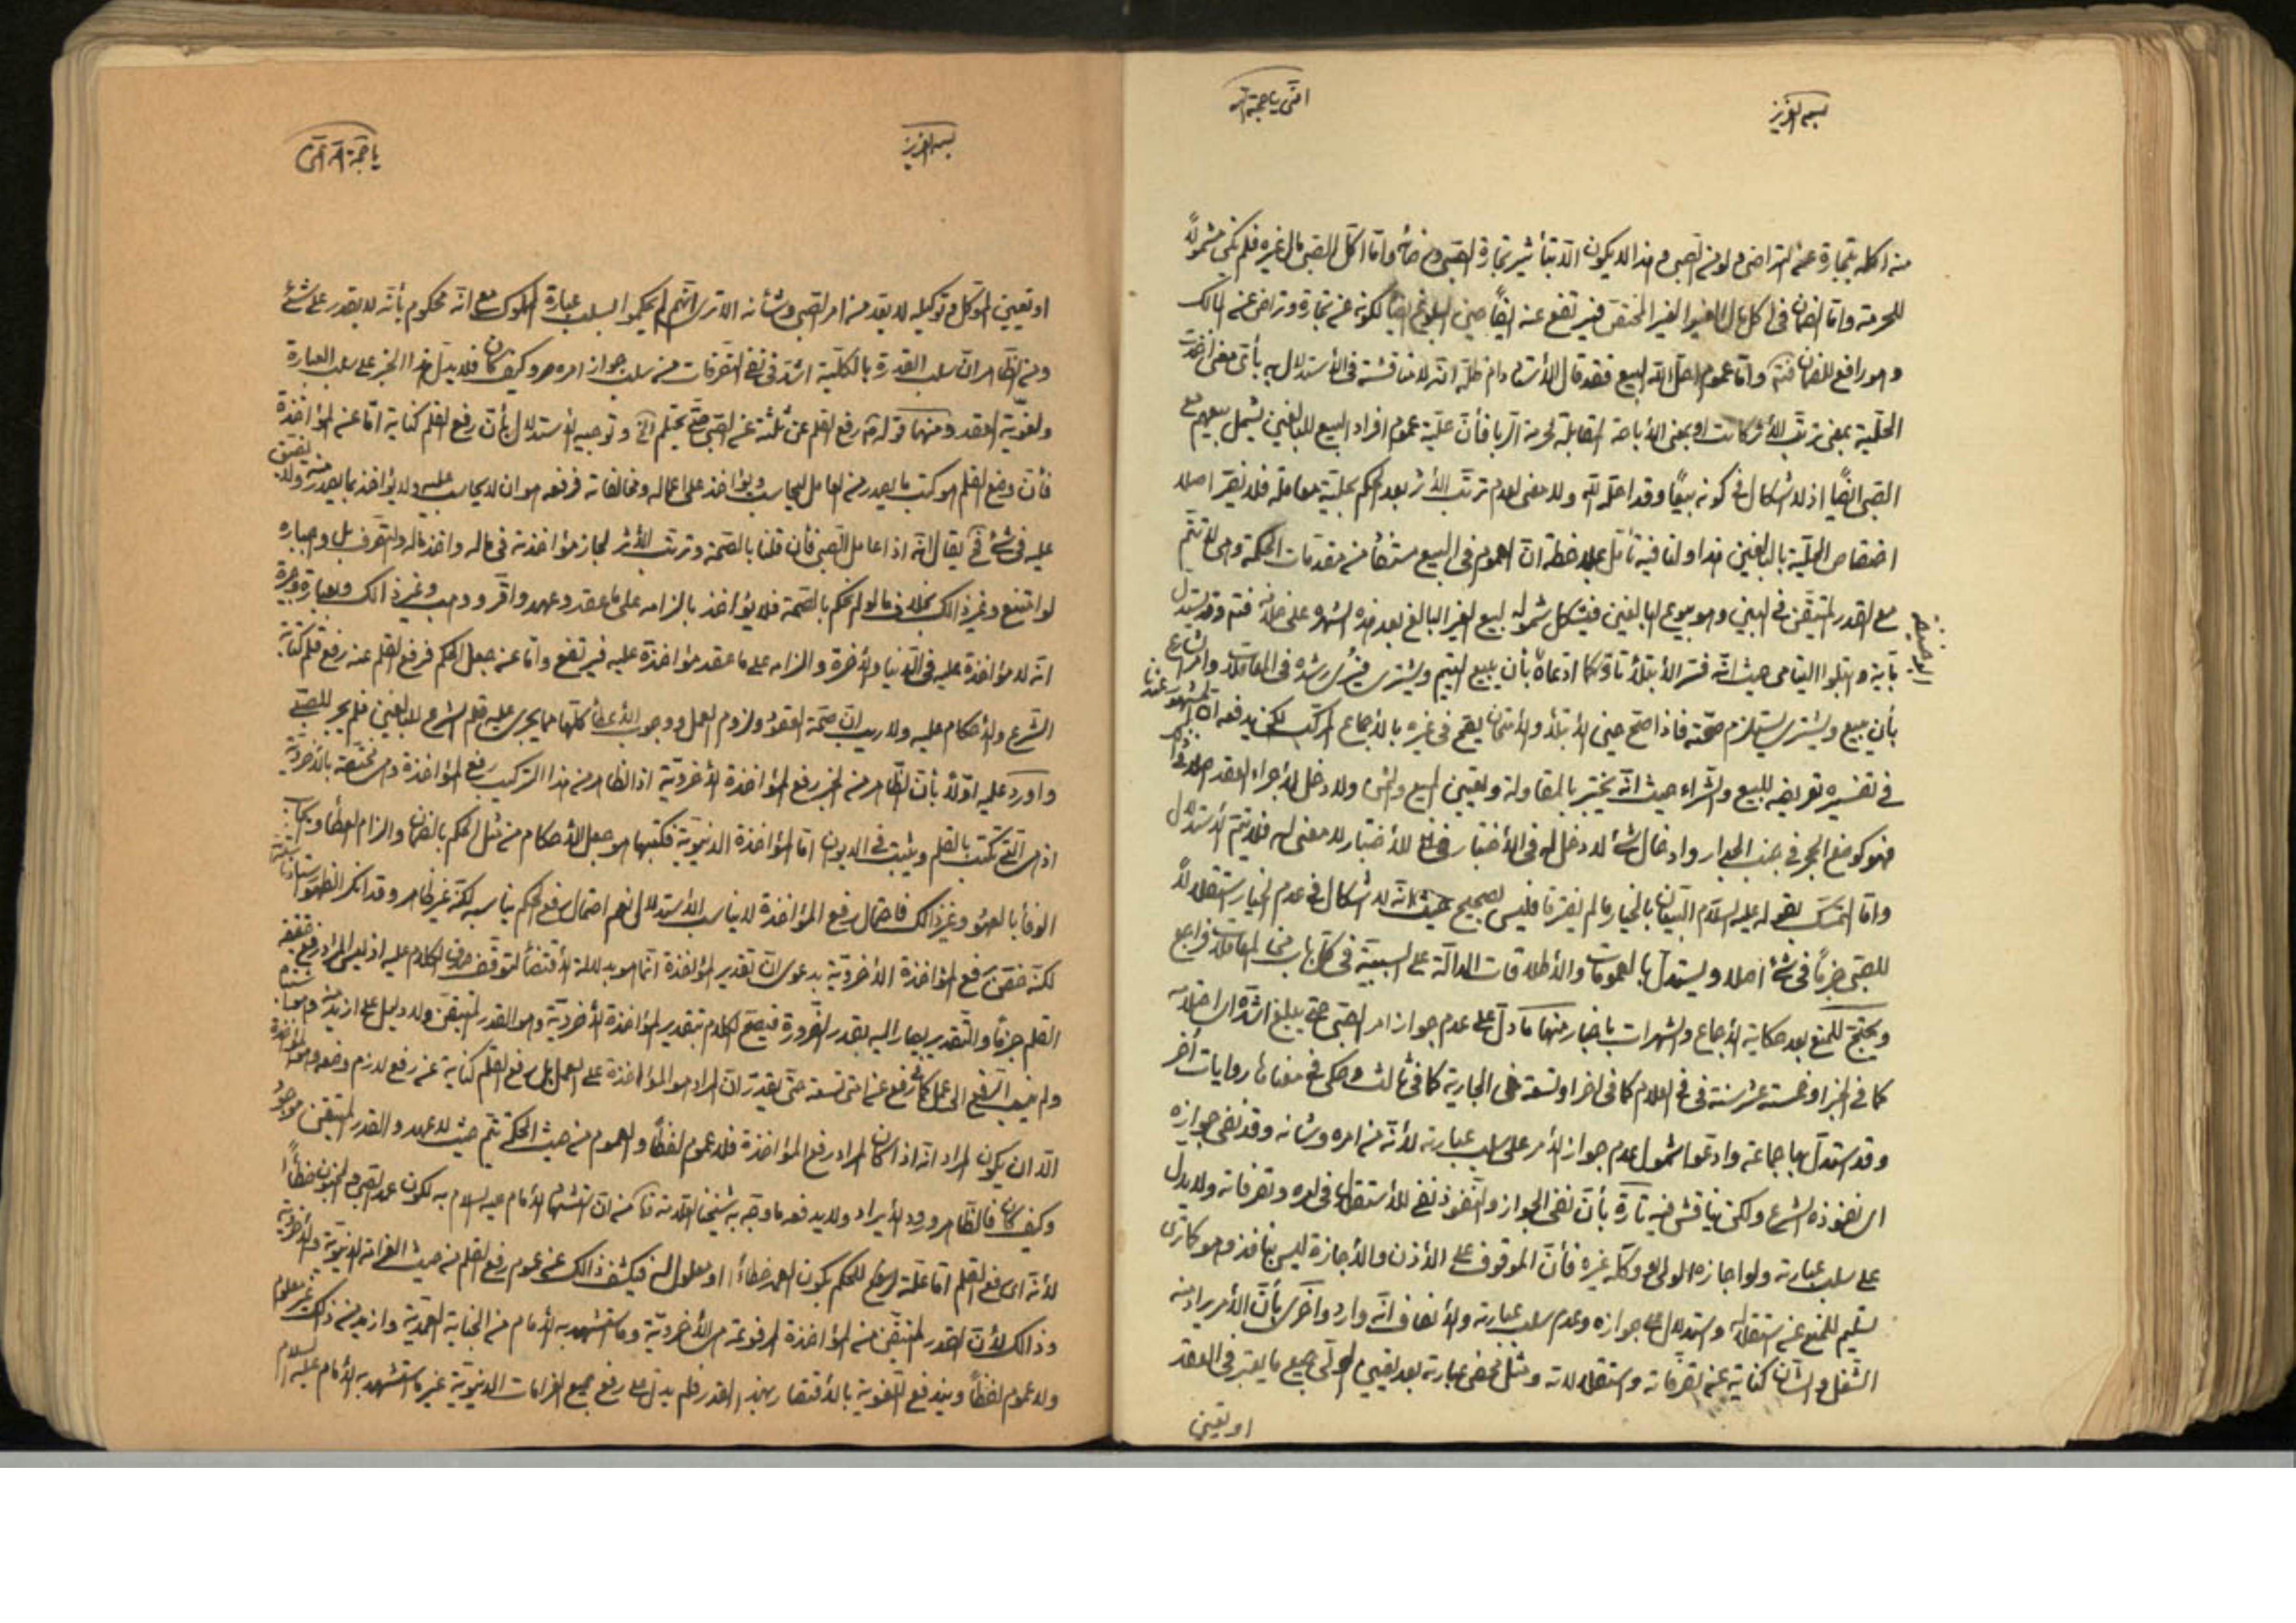 بسمه العزیز
منه اكله بتجارة عن التراض و لو من الصبى و هذا لا يكون الا بتأثير تجارة الصبى و رضائه و اما اكل الصبى مال غيره فلم يكن مشمولاً
للحرمة و اما الضمان فى اكل مال الغير الغير المختص فيرتفع عنه ايضاً حين البلوغ لكونه عن تجارة و تراض عن المالك
و هو رافع للضمان فتم و اما عموم احل الله البيع فقد قال الأستاد دام ظله انه لا مناقشة فى الأستدلال به بأى معنى اخذت
الحلية بمعنى ترتب الأثر كانت او بمعنى الأباحة المقابلة لحرمة الربا فأن حلية عموم افراد البيع للبالغين يشمل بيعهم مع
الصبى ايضاً اذ لا اشكال فى كونه بيعاً و قد احله الله و لا معنى لعدم ترتب الأثر بعد الحكم بحلية معاملة فلا نفتقر اصلا
اختصاص الحلية بالبالغين هذا و لنا فيه تأمل بملاحظة ان العموم فى البيع مستفاد من مقدمات الحكمة و هى لا تتم
مع القدر المتيقن فى البين و هو بيوع البالغين فيشكل شموله لبيع الغير البالغ بعد هذه الشهرة على خلافه فتم و قد يستدل
بآية و ابتلوا اليتامى حيث انه فسر الأبتلاء تارة كما ادعاه بأن يبيع اليتيم و يشترى فيُرى رشده فى المعاملات و امر الشارع
بأن يبيع و يشترى يستلزم صحته فاذا صح حين الأبتلاء و الأمتحان يصح فى غيره بالأجماع المركب لكن يدفعه ان المشهور عندنا
فى تفسيره تعريضه للبيع و الشراء حيث انه يختبر بالمقاولة و تعيين المبيع و الثمن و لا دخل لأجراء العقد اصلا
فهو كوضع الحجر فى جنب الجدار و ادخال شئ لا دخل له فى الأختبار فى الأختبار لا معنى له فلا يتم الأستدلال
و اما التمسك بقوله عليه السلام البيعان بالخيار ما لم يفترقا فليس بصحيح حيث انه لا اشكال فى عدم الخيار استقلالاً
للصبى جزماً فى شئ اصلا و يستدل بالعمومات و الأطلاقات الدالة على السببية فى كل باب من المعاملات فراجع
و يحتج للمنع بعد حكاية الأجماع و الشهرات باخبار منها ما دل على عدم جواز امر الصبى حتى يبلغ اشده اى احتلامه
كما فى الخبر او خمسة عشر سنة فى الغلام كما فى اخر او تسعة فى الجارية كما فى ثالث و حكى فى معناها روايات أخر
و قد استدل بها جماعة و ادعوا شمول عدم جواز الأمر على سلب عبارته لأنه من امره و شانه و قد نفى جوازه
اى نفوذه الشرع و لكن يناقش فيه تارة بأن نفى الجواز و النفوذ نفى للأستقلال فى امره و تصرفاته و لا يدل
على سلب عبارته و لو اجازه الولى او وكله غيره فأن الموقوف على الأذن و الأجازة ليس بنافذ و هو كما ترى
تسليم للمنع عن استقلاله و استدلال على جوازه و عدم سلب عبارته و الأنصاف انه وارد و اخرى بأن الأمر يراد منه
الشغل و الشأن كناية عن تصرفاته و استقلالاته و مثل محض عبارته بعد تعيين الولى جميع ما يعتبر فى العقد
او تعيين
بسمه العزیز
او تعيين الموكل و توكيله لا يعد من امر الصبى و شأنه الا ترى انهم لم يحكموا بسلب عبارة المملوك مع انه محكوم بأنه لا يقدر على شئ
و من الظاهر ان سلب القدرة بالكلية اشد فى نفى التصرفات من سلب جواز امره و كيف كان فلا يدل هذا الخبر على سلب العبارة
و لغوية العقد و منها قوله رفع القلم عن ثلثة عن الصبى حتى يحتلم الخ و توجيه الأستدلال بأن رفع القلم كناية اما عن المؤاخذة
فأن وضع القلم هو كتب ما يصدر من العامل ليحاسب و يؤاخذ على اعماله و مخالفاته فرفعه هو ان لا يحاسب عليه و لا يؤاخذ بما يصدر منه و لا يضيق
عليه فى شئ فح يقال انه اذا عامل الصبى فأن قلنا بالصحة و ترتب الأثر لجاز مؤاخذته فى ماله و اخذ ماله و التصرف بل و اجباره
لو امتنع و غير ذالك بخلاف ما لو لم نحكم بالصحة فلا يؤاخذ بالزامه على ما عقد و عهد و اقر و وهب و غير ذالك و بعبارة وجيزة
انه لا مؤاخذة عليه فى الدنيا و الأخرة و الزامه على ما عقد مؤاخذة عليه فيرتفع و اما عن جعل الحكم فرفع القلم عنه رفع قلم كتابة
الشرع و الأحكام عليه و لا ريب ان صحة العقد و لزوم العمل و وجوب الأعطاء كلها مما يجرى عليه قلم الشرع للبالغين فلم يجر للصبى
و اورد عليه اولاً بأن الظاهر من الخبر رفع المؤاخذة الأخروية اذ الظاهر من هذا التركيب رفع المؤاخذة و هى مختصة بالأخروية
اذ هى التى تكتب بالقلم و يثبت فى الديون اما المؤاخذة الدنيوية فكتبها هو جعل الأحكام من مثل الحكم بالضمان و الزام العطاء و ايجاب
الوفاء بالعهود و غير ذالك فاحتمال رفع المؤاخذة لا يناسب الأستدلال نعم احتمال رفع الحكم يناسبه لكنه غير ظاهر و قد انكر الظهور استادنا
لكنه خص رفع المؤاخذة الأخروية بدعوى ان تقدير المؤاخذة انما هو بدلالة الأقتضاء لتوقف صدق الكلام عليه اذ ليس المراد رفع حقيقة
القلم جزماً و التقدير يصار اليه بقدر الضرورة فيصح الكلام بتقدير المؤاخذة الأخروية و هو القدر المتيقن و لا دليل على ازيد منه
و لم ينسب الرفع الى عمل كما فى رفع عن امتى تسعة حتى يقدر ان المراد هو المؤاخذة على العمل بل رفع القلم كناية عن رفع لازم وضعه و هو المؤاخذة
الا ان يكون المراد انه اذا كان المراد رفع المؤاخذة فلا عموم لفظاً و العموم من حيث الحكمة يتم حيث لا عهد و القدر المتيقن موجود
و كيف كان فالظاهر ورود الأيراد و لا يدفعه ما وجه به شيخنا العلامة من ان استشهاد الأمام عليه السلام به لكون عمد الصبى و المجنون خطاءً
لأنه اى رفع القلم اما علة للحكم بكون العمد خطاءً او معلول له فيكشف ذالك عن عموم رفع القلم من حيث الغرامة الدنيوية و الأخروية
و ذالك لأن القدر المتيقن من المؤاخذة المرفوعة هى الأخروية و ما استشهد به الأمام من الجناية العمدية و ازيد من ذلك غير معلوم
و لا عموم لفظاً و يندفع اللغوية بالأقتصار بهذا القدر فلم يدل على رفع جميع الغرامات الدنيوية غير ما استشهد به الأمام عليه السلام